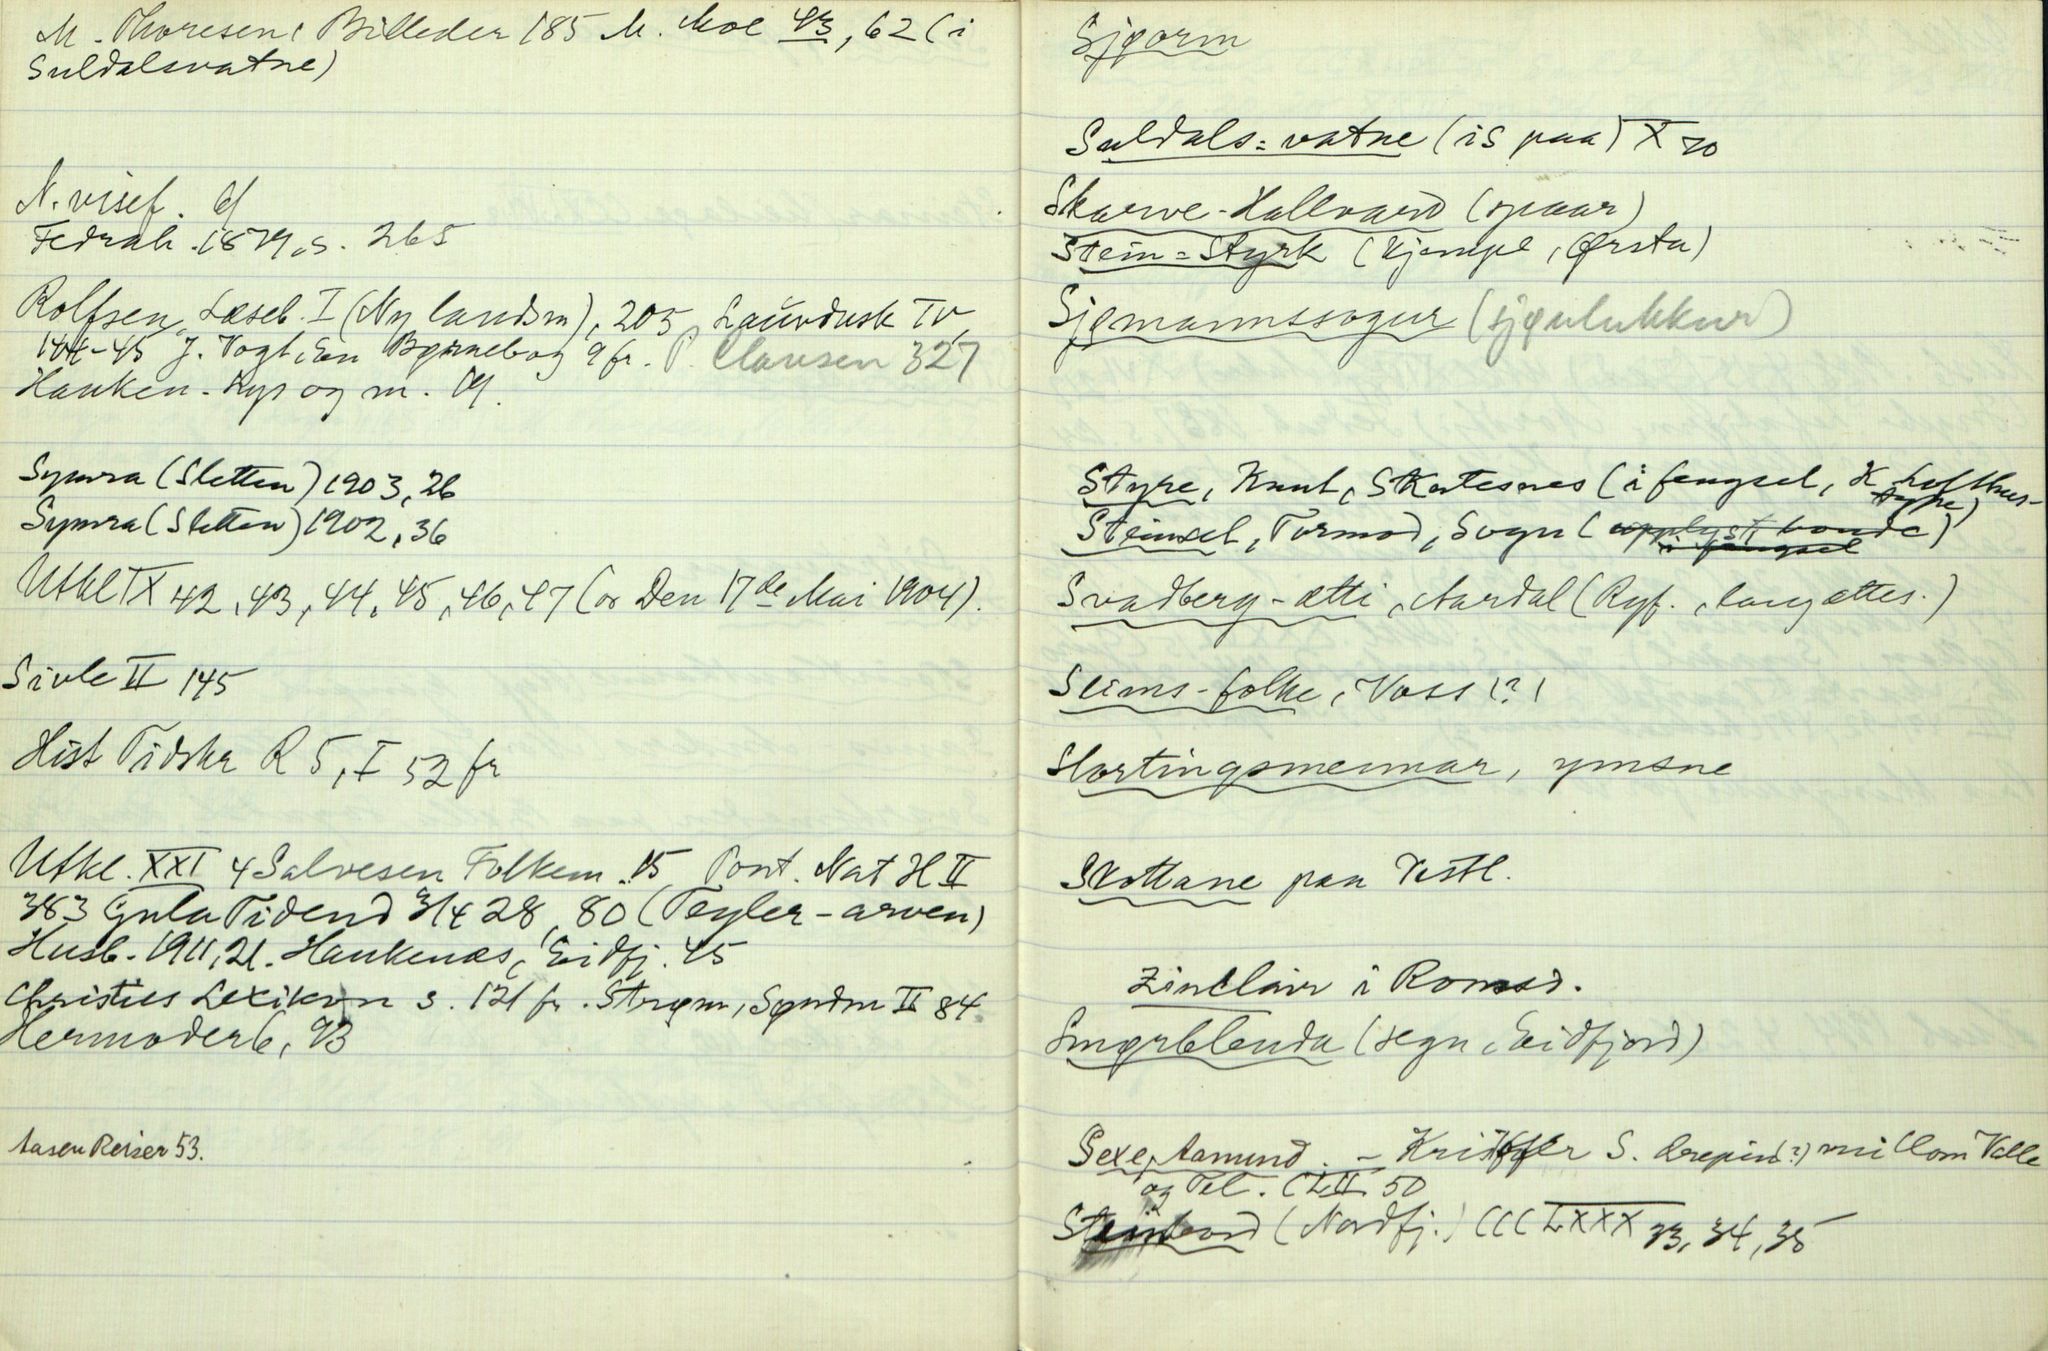 M. Thoresen, Billeder 185 M. Moe 43, 62 (i
Suldalsvatne)
N. visef. 61
Fedrah. 1879, s. 265
Rolfsen, Læseb. I (Ny landsm), 205 Laüvdusk IV,
144-45 J. Vogt, En Børnebog 9 fr. P. Clausen 327
Hauken. Kys og m. 19.
Symra (Sletten) 1903, 26
Symra (Sletten) 1902, 36
Utkl IX 42, 43, 44, 45, 46, 47 (or Den 17de Mai 1904).
Sivle II 145
Hist Tidskr R 5, I 52 fr
Utkl. XXI 4 Salvesen Folkem. 15 Pont. Nat H II
383 Gula Tidend 3/4 28, 80 (Teyler-arven)
Husb. 1911, 21. Haukenæs, Eidfj. 45
Christies Lexikon s. 121 fr. Strøm, Søndm II 84
Hermoder 6, 93
Aasen Reiser 53.
Sjøorm
Suldals=vatne (is paa) X 70
Skarve-Hallvard (spaar)
Stein=Styrk (kjempe, Ørsta)
Sjømannssogur (sjøulukkur)
Styre, Knut, Skatesnes (i fengsel, K Lofthus-
styre)
Steinsel, Tormod, Sogn (upplyst bonde)
i fengsel
Svadberg-ætti, Aardal (Ryf., langættes.)
Seims-folke, Voss (?)
Stortingsmennar, ymsne
Skottane paa Vestl.
Zinclair i Romsd.
Smørblenda (segn, Eidfjord)
Sexe, Aamund. - Kristoffer S. drepin(?) millom Valle
og Tel. CLII 50
Steinbord (Nordfj.) CCCLXXX 33, 34, 35